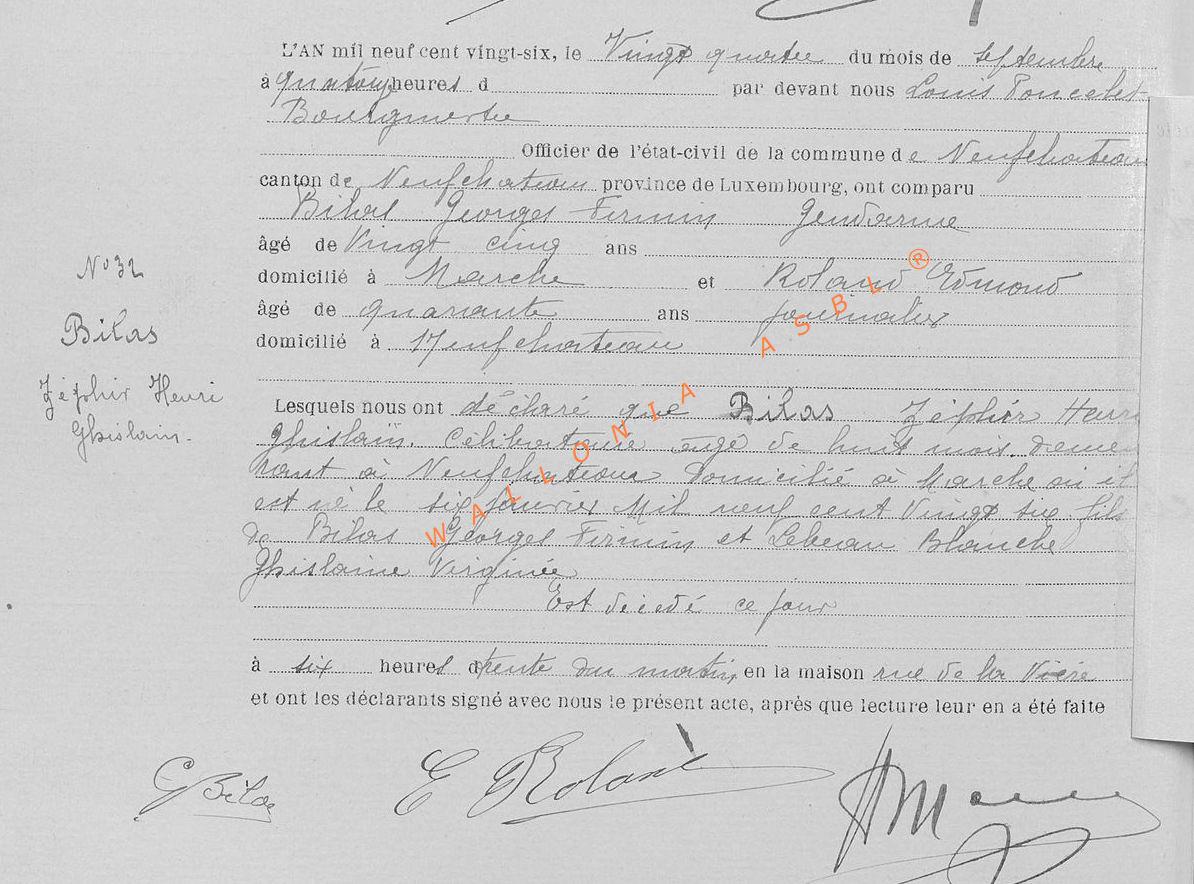 L'AN mil neuf cent vingt-six, le Vingt quatre du mois de septembre
à quatorze heures d par devant nous Louis Poncelet
Bourgmestre
Officier de l'état-civil de la commune de Neufchateau
canton de Neufchateau province de Luxembourg, ont comparu
Bilas Georges Firmin Gendarme
âgé de Vingt cinq ans
N° 32
domicilié à Marche et Roland Edmond
âgé de quarante ans journalier
Bilas
domicilié à Neufchateau
Zéphir Henri
Ghislain.
Lesquels nous ont déclaré que Bilas Zéphir Henri
Ghislain. Célibataire agé de huit mois. demeu
rant à Neufchateau domicilié à Marche où il
est né le six janvier Mil neuf cent Vingt six fils
de Bilas Georges Firmin et Lebeau Blanche
Ghislaine Virginie
Est décédé ce jour
à six heures trente du matin en la maison rue de la
et ont les déclarants signé avec nous le présent acte, après que lecture leur en a été faite
G Bilas E Roland
WALLONIA ASBL ®